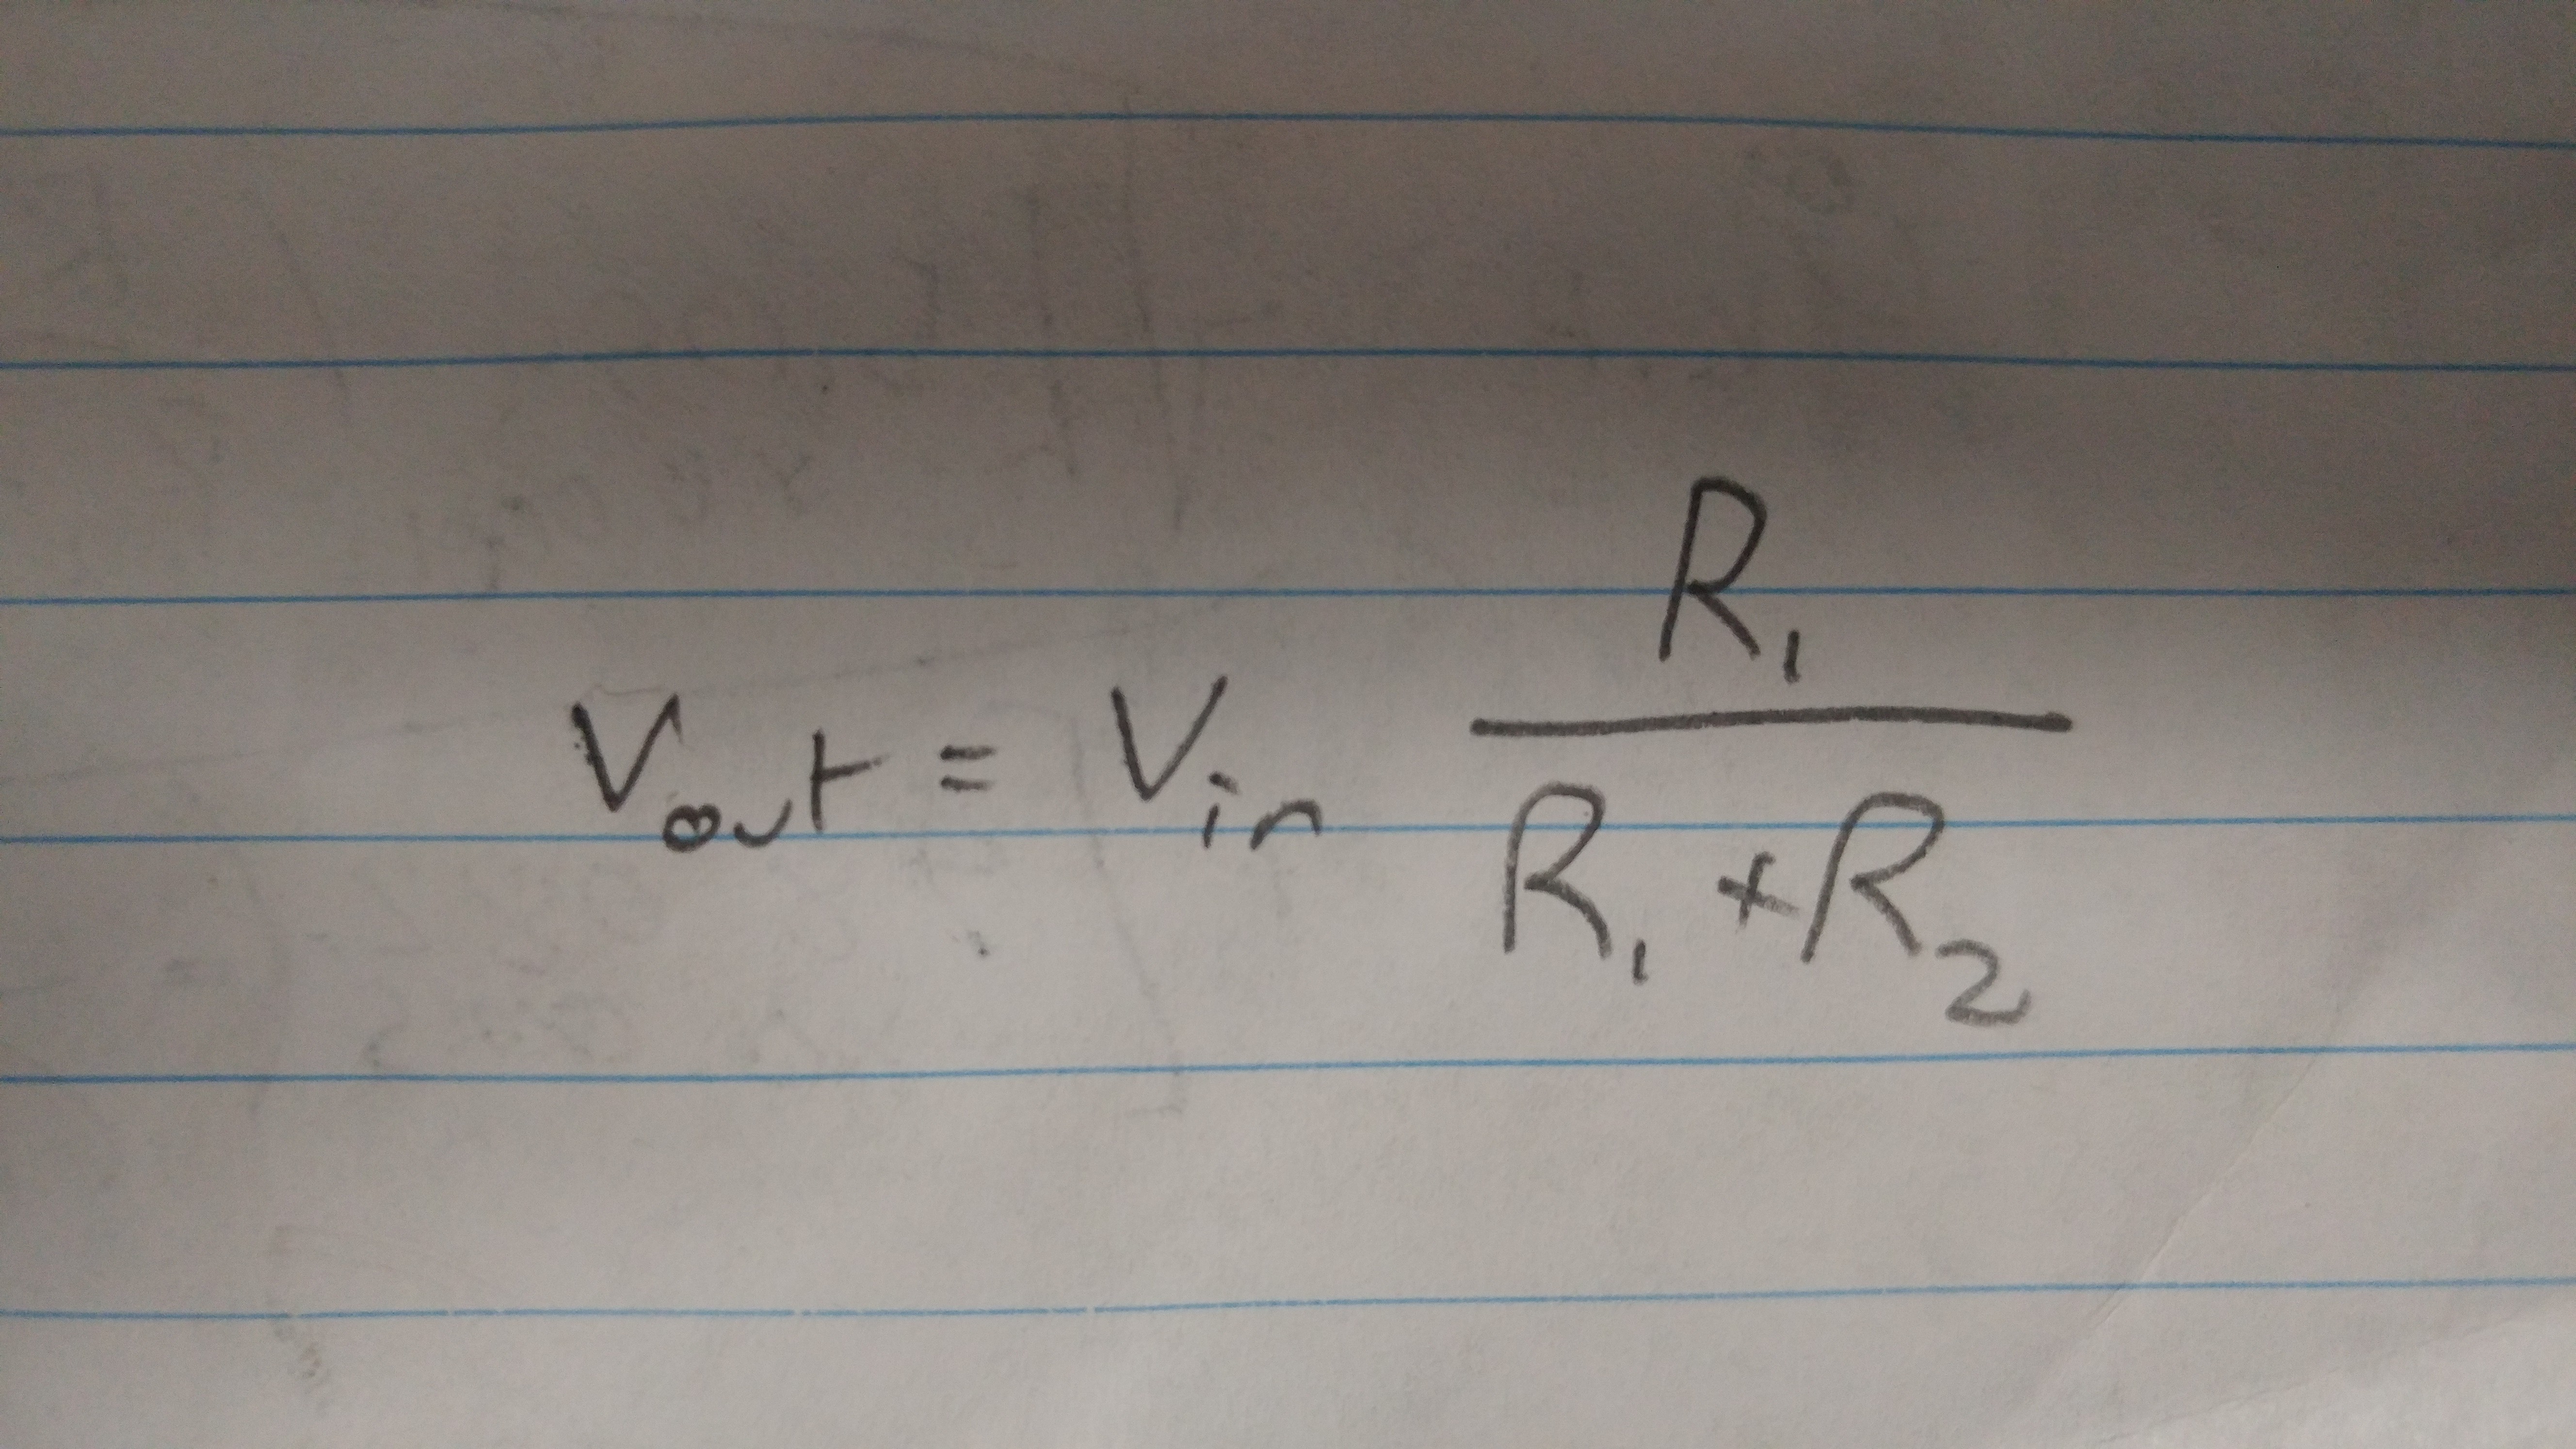 V_out = V_in R_1 / (R_1 + R_2)